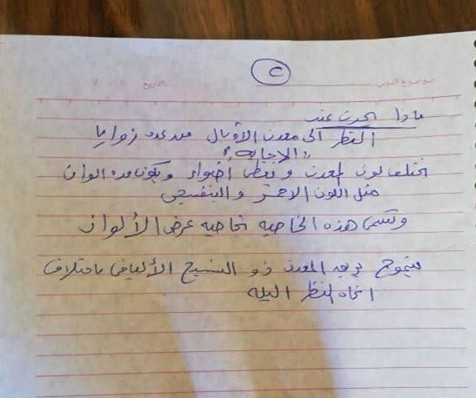 ٢
موضوع الدرس
التاريخ
ماذا يحدث عند
النظر الى معدن الأوبال من عدة زوايا
"الاجابة"
تختلف لون المعدن و يعطى اضواء و يكون عدة الوان
مثل اللون الاحمر و البنفسجى
وتسمى هذه الخاصيه بخاصيه عرض الألوان
يتموج بريق المعدن ذو النسيج الأليافى باختلاف
اتجاه النظر اليه